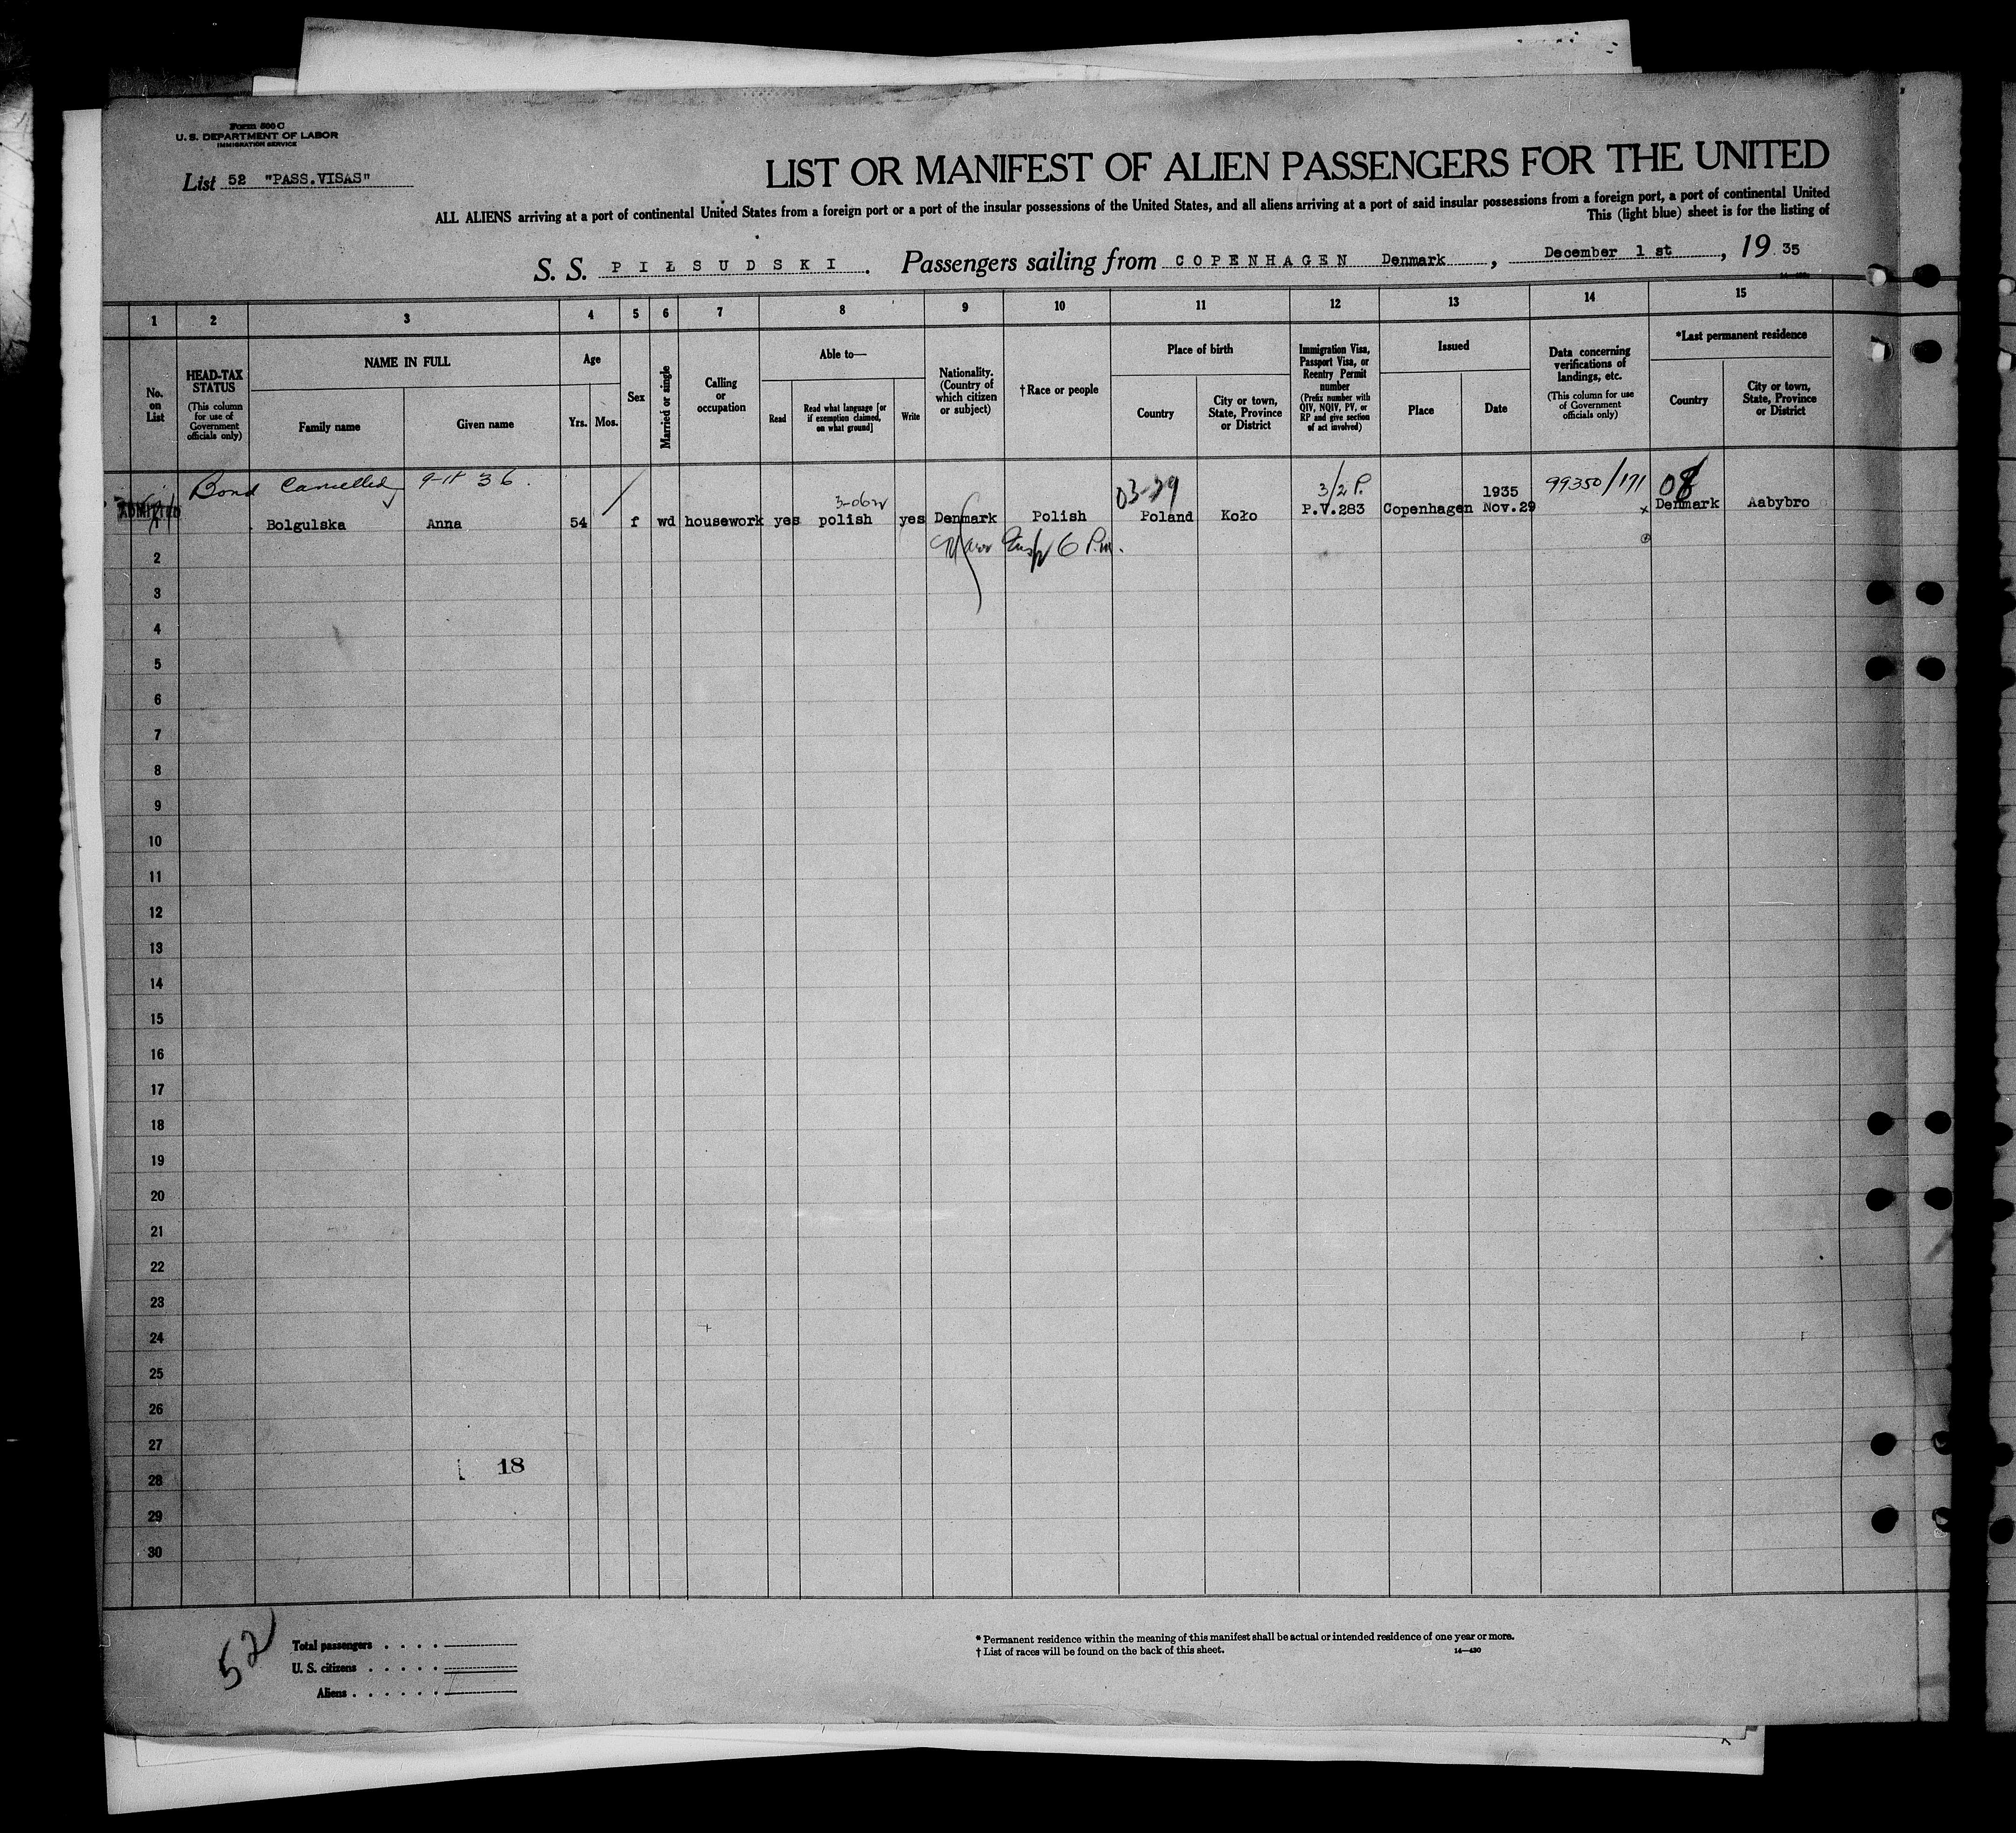 Form 500 C
U. S. DEPARTMENT OF LABOR
IMMIGRATION SERVICE
List 52 "PASS.VISAS"
LIST OR MANIFEST OF ALIEN PASSENGERS FOR THE UNITED
ALL ALIENS arriving at a port of continental United States from a foreign port or a port of the insular possessions of the United States, and all aliens arriving at a port of said insular possessions from a foreign port, a port of continental United
This (light blue) sheet is for the listing of
S. S. PIŁSUDSKI. Passengers sailing from COPENHAGEN Denmark, December 1 st, 19 35
1 2 3 4 5 6 7 8 9 10 11 12 13 14 15
No. on List
HEAD-TAX STATUS
(This column for use of Government officials only)
NAME IN FULL
Family name
Given name
Age
Yrs. Mos.
Sex
Married or single
Calling or occupation
Able to—
Read
Read what language [or if exemption claimed, on what ground]
Write
Nationality. (Country of which citizen or subject)
† Race or people
Place of birth
Country
City or town, State, Province or District
Immigration Visa, Passport Visa, or Reentry Permit number
(Prefix number with QIV, NQIV, PV, or RP and give section of act involved)
Issued
Place
Date
Data concerning verifications of landings, etc.
(This column for use of Government officials only)
*Last permanent residence
Country
City or town, State, Province or District
Bond Cancelled 9-18 36. 3/2 P. 99350/171 08
ADMITTED
Bolgulska Anna 54 f wd housework yes polish yes Denmark Polish Poland Koło P.V.283 Copenhagen 1935 Nov.29 x Denmark Aabybro
6 P.m.
2
3
4
5
6
7
8
9
10
11
12
13
14
15
16
17
18
19
20
21
22
23
24
25
26
27
18
28
29
30
52
Total passengers . . . .
U. S. citizens . . . . .
Aliens . . . . . .
* Permanent residence within the meaning of this manifest shall be actual or intended residence of one year or more.
† List of races will be found on the back of this sheet. 14—430